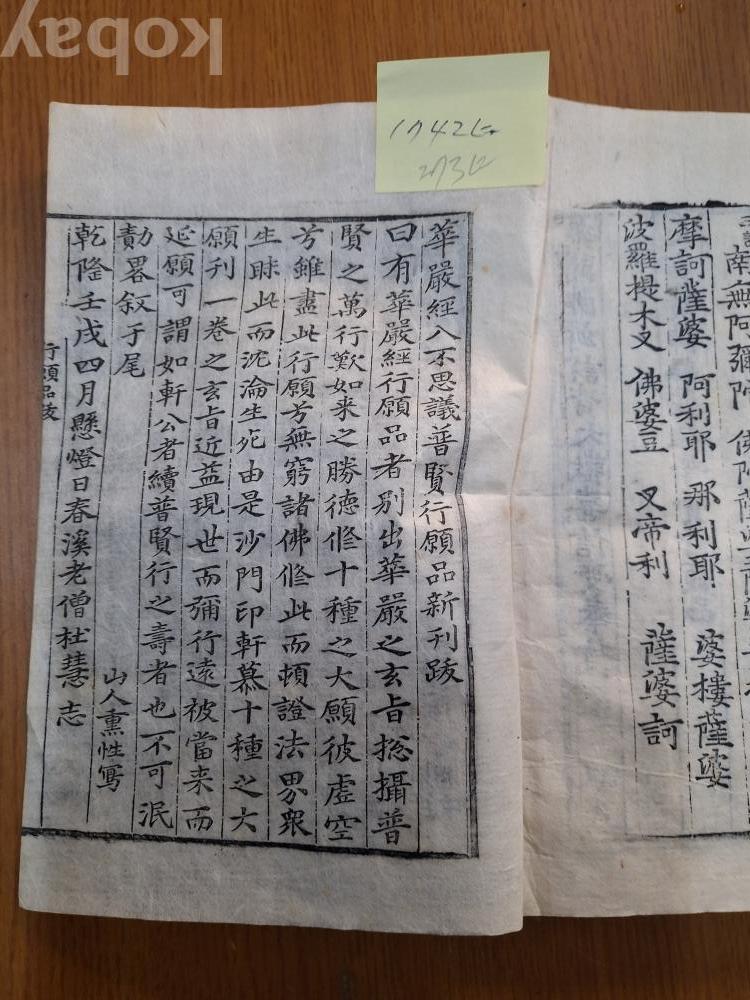 kobay
1742년
273년
南無阿彌陀
摩訶薩婆 阿利耶 那利耶 婆樓薩婆
波羅提木叉 佛婆豆 叉帝利 薩婆訶
華嚴經入不思議普賢行願品新刊跋
曰有華嚴經行願品者別出華嚴之玄旨揔攝普
賢之萬行歎如来之勝德修十種之大願彼虛空
芳雖盡此行願芳無窮諸佛修此而頓證法界衆
生昧此而沉淪生死由是沙門印軒慕十種之大
願刊一卷之玄旨近益現世而彌行遠被當来而
延願可謂如軒公者續普賢行之壽者也不可泯
勣畧叙于尾
山人熏性寫
乾隆壬戌四月懸燈日春溪老僧杜慧志
行願品跋